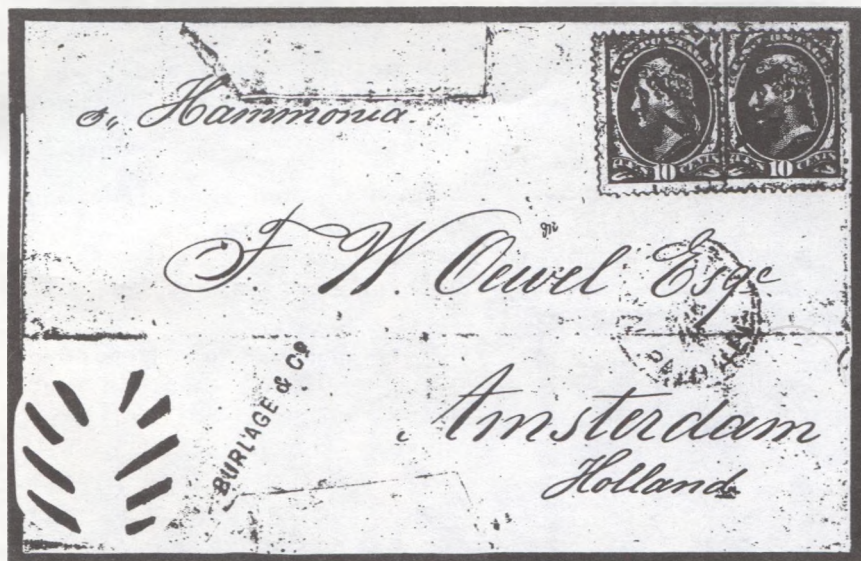 Hammonia
10 10
F W. Oewel Esqe
BURLAGE & Co
Amsterdam
Holland.